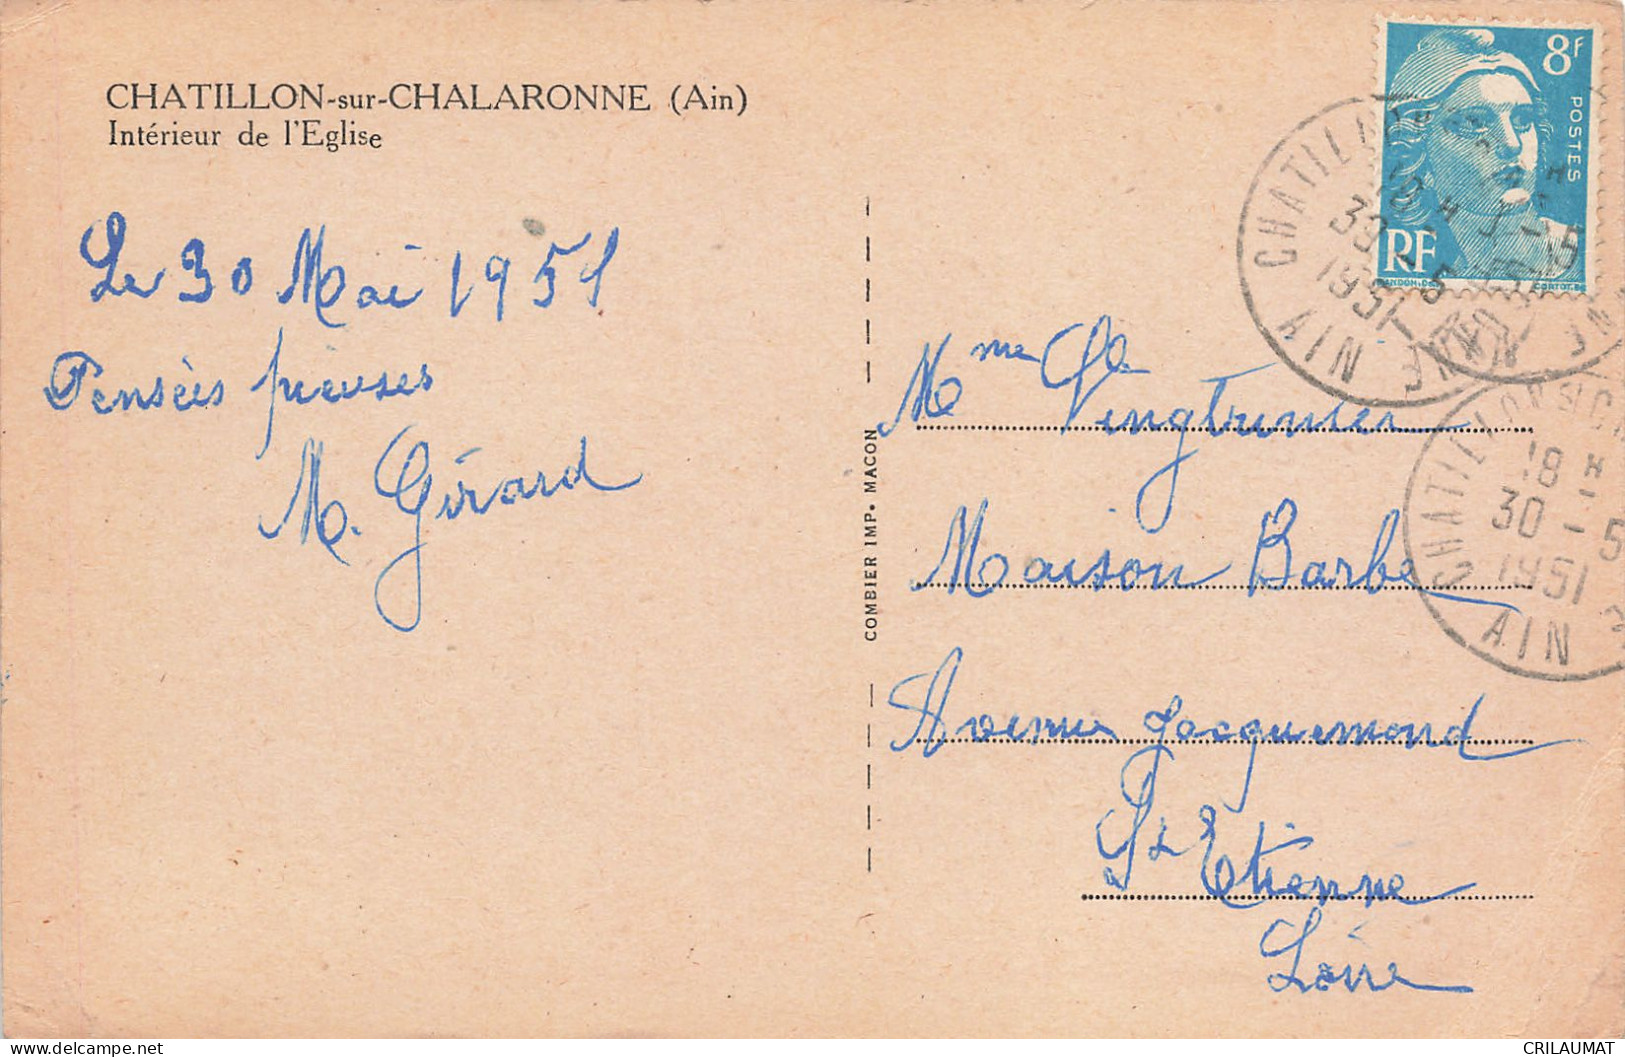 CHATILLON-sur-CHALARONNE (Ain)
Intérieur de l'Eglise
Le 30 Mai 1951
Pensées pieuses
M. Girard
COMBIER IMP. MACON
8F
POSTES
RF
CHATILLON
18 H
30-5
1951
AIN
Mme Vve Vingtrinier
Maison Barbe
Avenue Jacquemond
St Etienne
Loire
CHATILLON S CH
18 H
30-5
1951
AIN
www.delcampe.net
CRILAUMAT